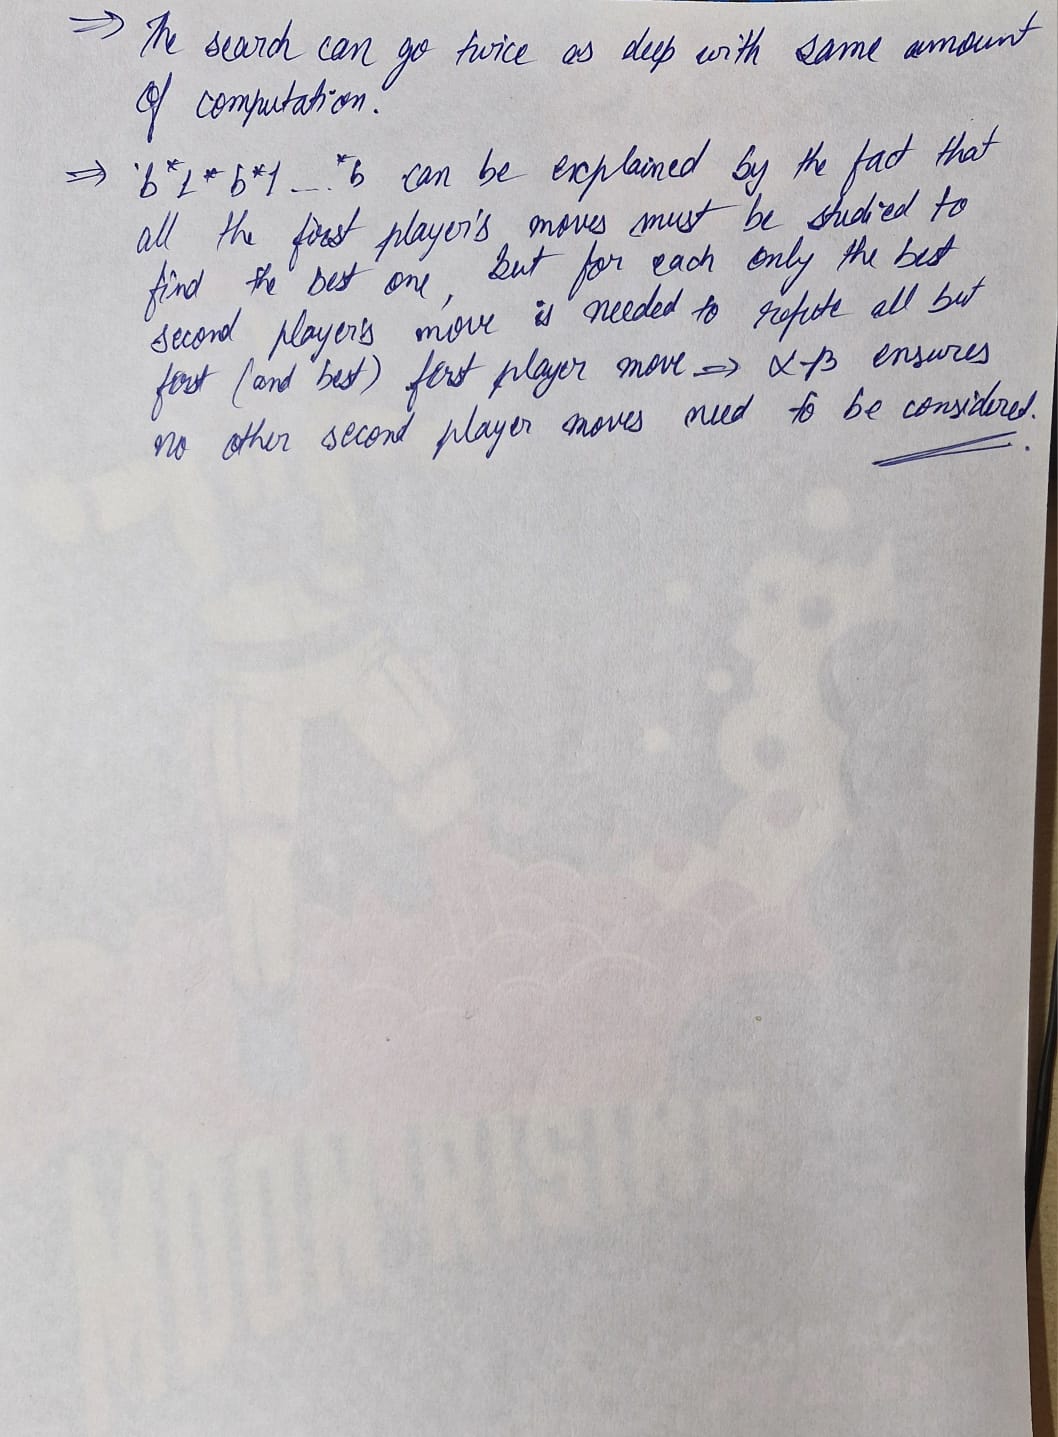 ⇒ The search can go twice as deep with same amount
of computation.
⇒ 'b*1*b*1....*b can be explained by the fact that
all the first player's moves must be studied to
find the best one, but for each only the best
second player's move is needed to refute all but
first (and best) first player move ⇒ α-β ensures
no other second player moves need to be considered.